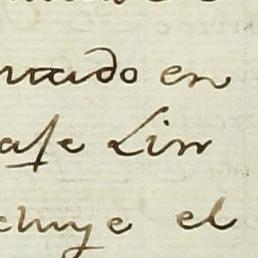 ntado en
ase Lin
cluye el